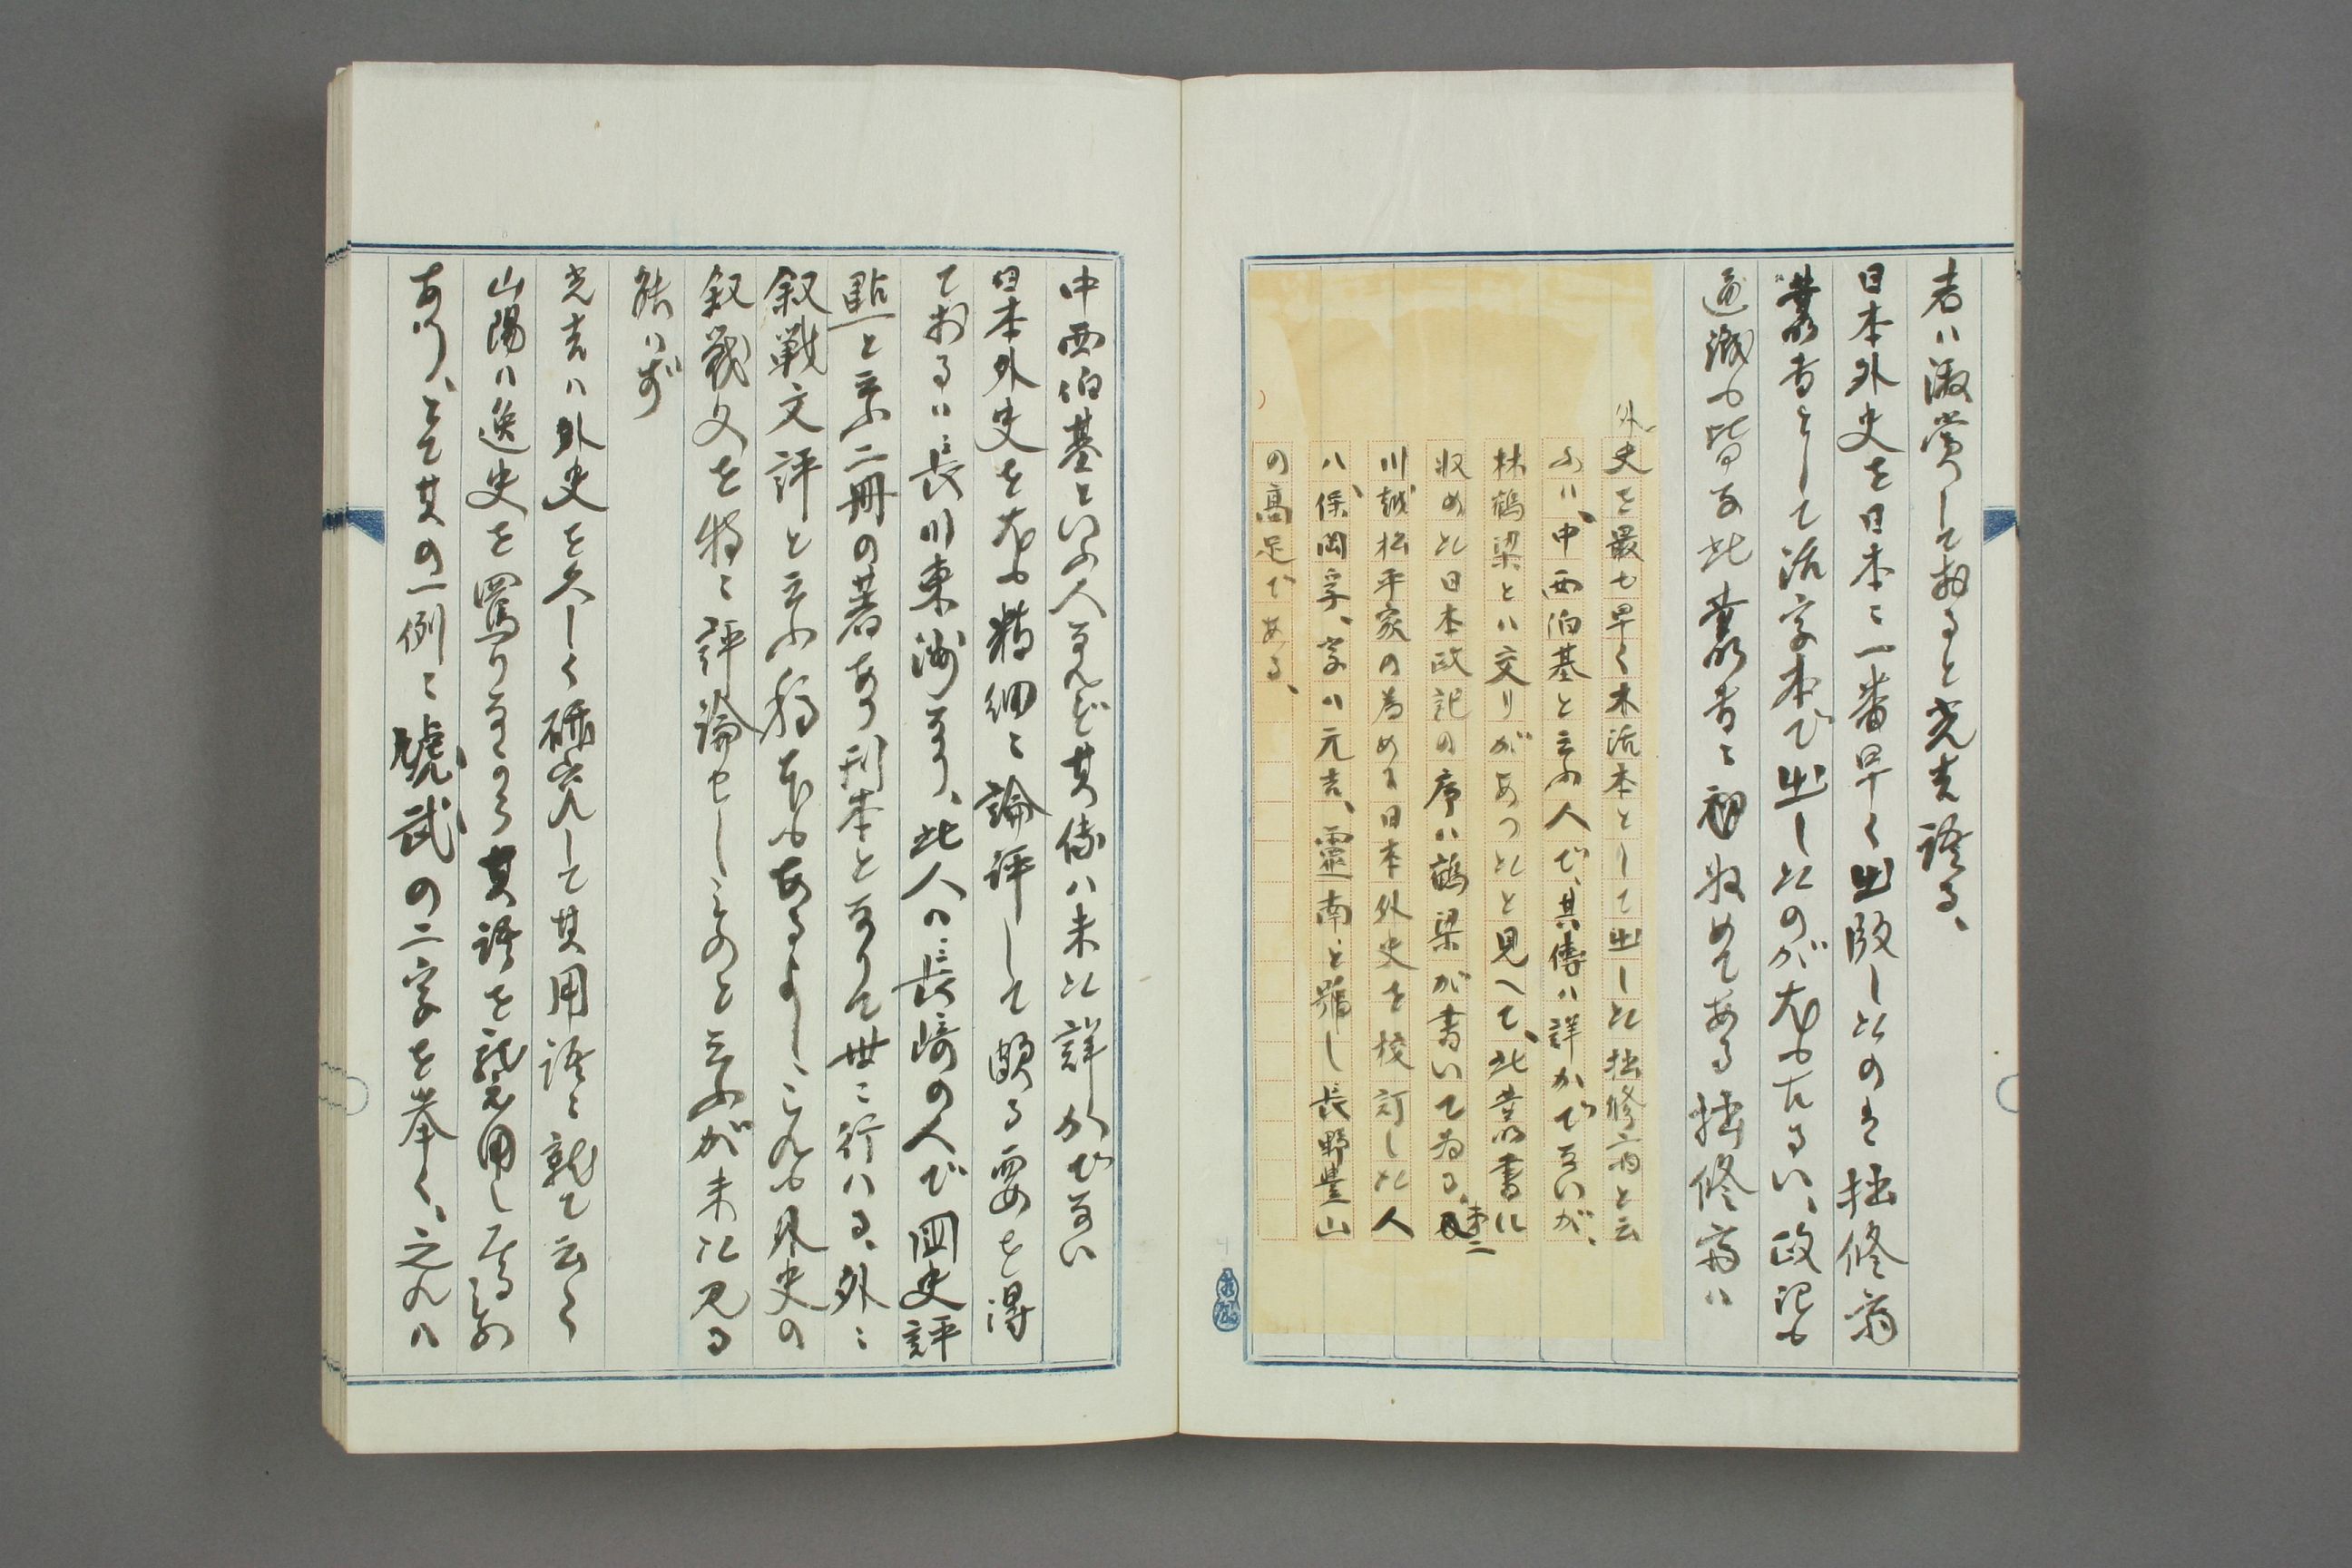 者ハ激賞して居ると光吉語る、
日本外史を日本ニ一番早く出版したのは拙修齋
叢書として活字本で出したのが尤も古るい、政記も
通議も皆な此叢書ニ収めてある拙修齋ハ
外史を最も早く木活本として出した拙修齋と云
ふハ、中西伯基と云ふ人で、其傳ハ詳かで無いが、
林鶴梁とハ交りがあつたと見へて、此叢書に
収めた日本政記の序ハ鶴梁が書いて居る、
川越松平家の為めに日本外史を校訂した人
ハ、保岡孚、字ハ元吉、靈南と號し長野豊山
の高足である、
中西伯基といふ人なれど其傳ハ未た詳かで無い
日本外史を尤も精細ニ論評して頗る要を得
ておるハ長川東洲なり、此人は長崎の人で国史評
點と云ふ二冊の著あり刊本となりて世ニ行ハる、外ニ
叙戦文評と云ふ稿本もあるよし、これも外史の
叙戦文を特ニ評論せしものと云ふが未た見る
能ハず
光吉ハ外史を久しく研究して其用語ニ就て云く
山陽ハ逸史を罵りながら其語を襲用し居る所
あり、とて其の一例ニ虓武の二字を挙く、之れハ